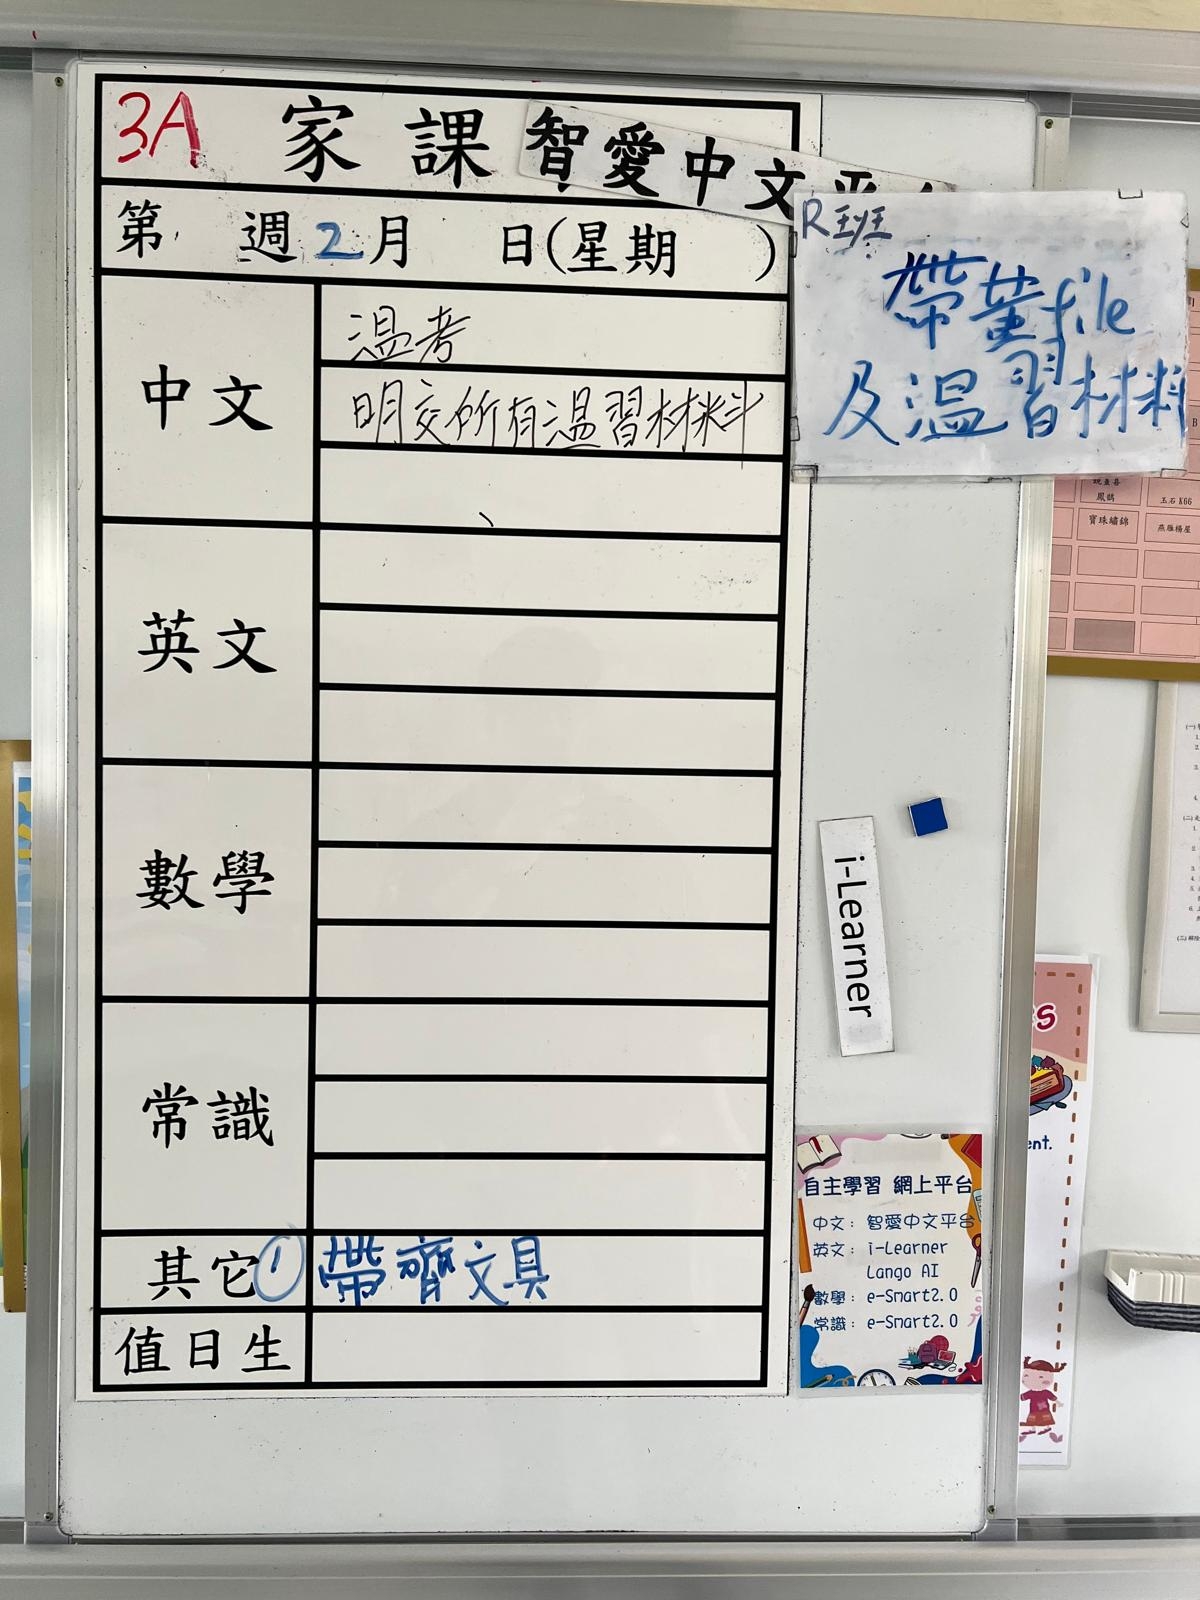 3A 家課 智愛中文平台
第 週 2月 日(星期 )
中文
温考
明交所有温習材料
英文
數學
常識
其它 ① 帶齊文具
值日生
R班
帶黃file
及温習材料
i-Learner
自主學習 網上平台
中文：智愛中文平台
英文：i-Learner
Lango AI
數學：e-Smart2.0
常識：e-Smart2.0
鳳鵲
玉石 K66
寶珠繡錦
燕雁楊屋
ent.